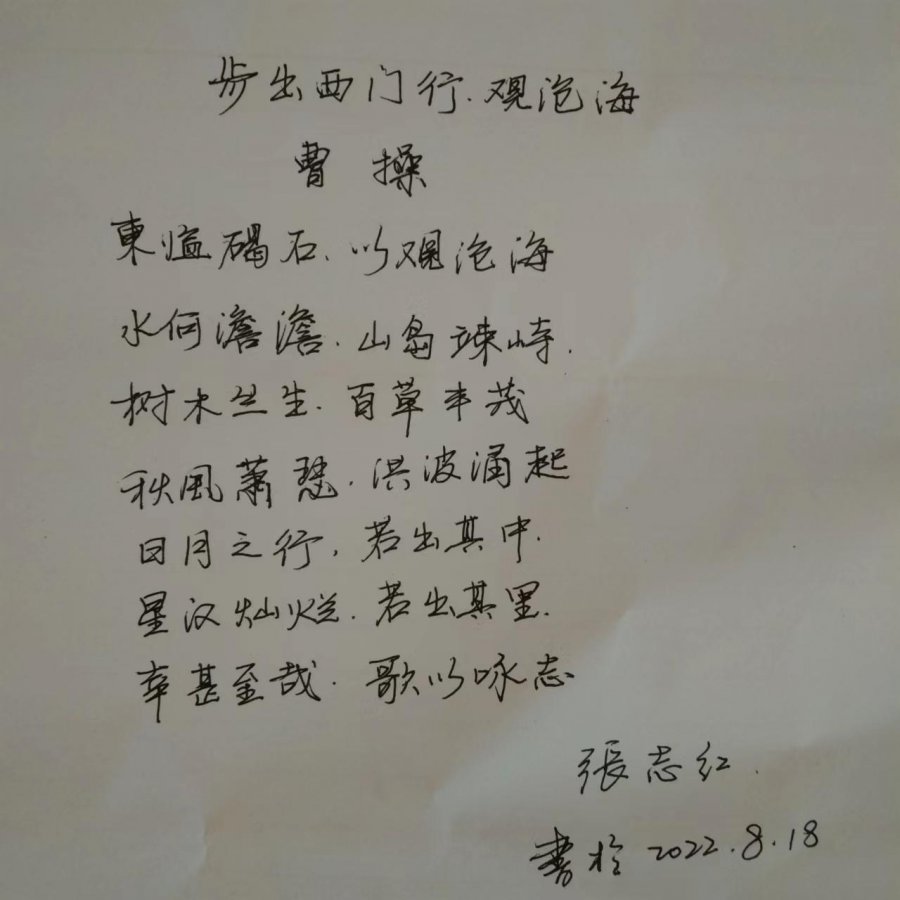 步出西门行.观沧海
曹操
東临碣石.以观沧海
水何澹澹.山岛竦峙.
树木丛生.百草丰茂
秋風萧瑟.洪波涌起
日月之行,若出其中.
星汉灿烂.若出其里.
幸甚至哉.歌以咏志
張志红.
書於2022.8.18